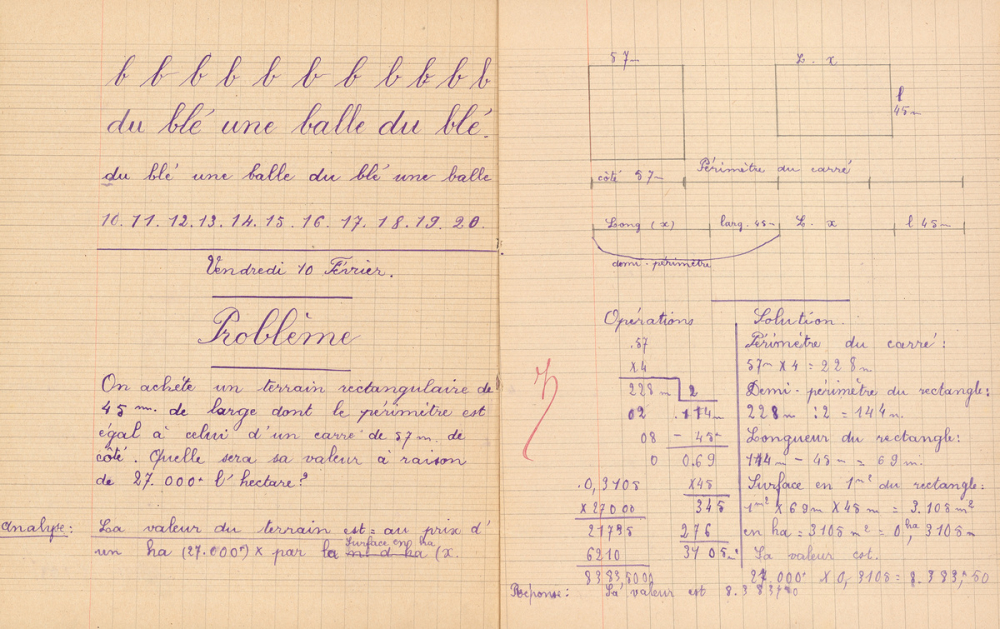 b b b b b b b b b b b
du blé une balle du blé.
du blé une balle du blé une balle
10. 11. 12. 13. 14. 15. 16. 17. 18. 19. 20.
Vendredi 10 Février.
Problème
On achète un terrain rectangulaire de
45 m. de large dont le périmètre est
égal à celui d'un carré de 57 m. de
côté. Quelle sera sa valeur à raison
de 27.000f l'hectare?
Analyse: La valeur du terrain est = au prix d'
surface en ha
un ha (27.000f) x par la (x.
57m L. x
l
45m
Périmètre du carré
côté 57m
Long (x) larg. 45m L. x l 45m
demi-périmètre
Opérations
.57
x4
228m 2
02 .114m
08 - 45m
0 0.69
.0,3105 x45
x27000 345
21735 276
6210 3105m²
8383,5000
Solution.
Périmètre du carré:
57m x 4 = 228m
Demi-périmètre du rectangle:
228m :2 = 144m.
Longueur du rectangle:
114m - 45m = 69m.
Surface en 1m² du rectangle:
1m² x 69m x 45m = 3.105m²
en ha = 3105m² = 0,ha 3105m
Sa valeur est.
27.000f x 0,3105 = 8.383,f50
Réponse: Sa valeur est 8.383f50